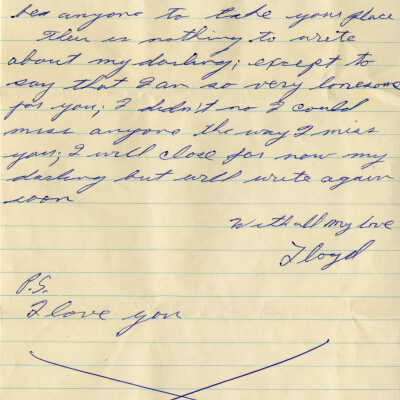 ben anyone to take your place
Ther is nothing to write
about my darling; except to
say that I am so very lonesome
for you; I didn't no I could
miss anyone the way I miss
you; I will close for now my
darling but will write again
soon
With all my love
Floyd
P.S.
I love you